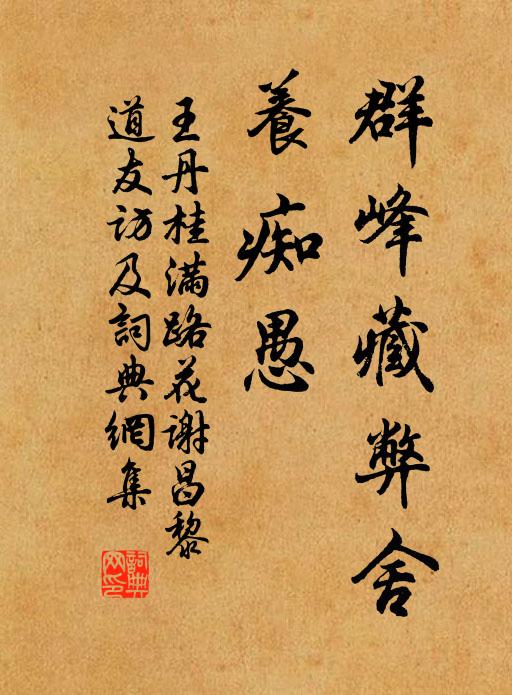 群峰藏弊舍
養痴愚
王丹桂滿路花謝昌黎
道友訪及詞典網集
詞典
网印